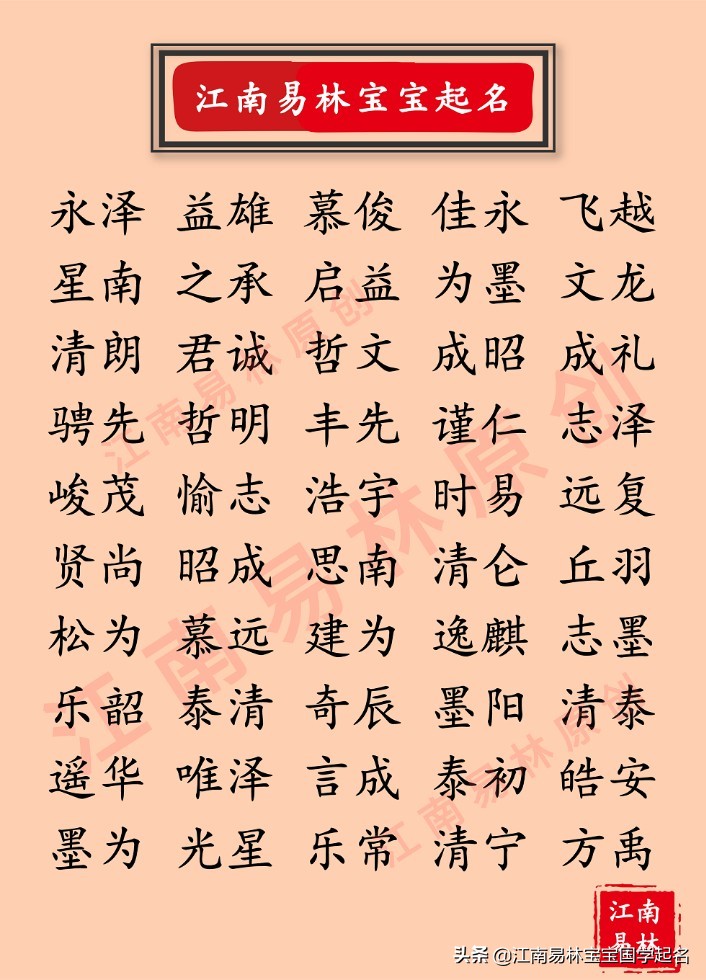 江南易林宝宝起名
永泽 益雄 慕俊 佳永 飞越
星南 之承 启益 为墨 文龙
清朗 君诚 哲文 成昭 成礼
骋先 哲明 丰先 谨仁 志泽
峻茂 愉志 浩宇 时易 远复
贤尚 昭成 思南 清仑 丘羽
松为 慕远 建为 逸麒 志墨
乐韶 泰清 奇辰 墨阳 清泰
遥华 唯泽 言成 泰初 皓安
墨为 光星 乐常 清宁 方禹
江南易林原创
江南易林原创
江南易林原创
江南
易林
头条 @江南易林宝宝国学起名